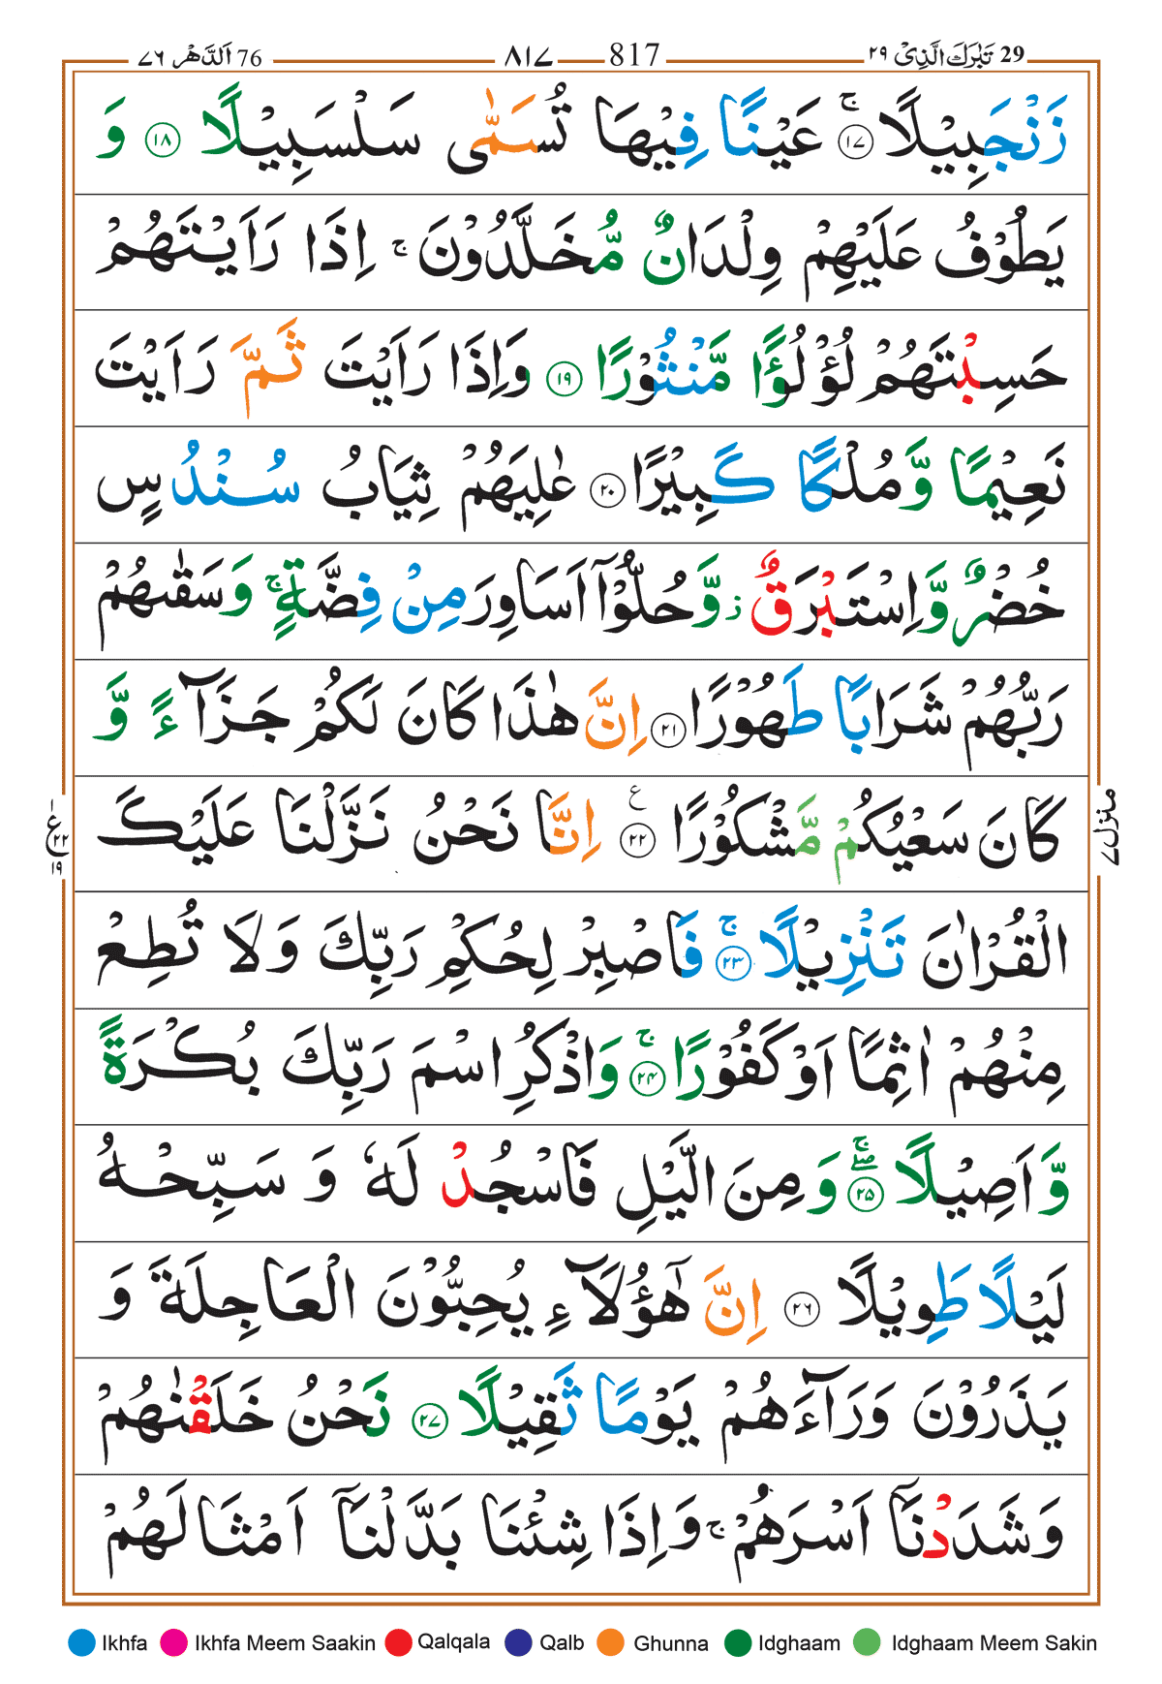 29 تَبٰرَكَ الَّذِیْ ۲۹ 817 ۸۱۷ 76 اَلدَّهْر ۷٦
زَنْجَبِیْلًا ۚ ﴿۱۷﴾ عَیْنًا فِیْهَا تُسَمّٰی سَلْسَبِیْلًا ﴿۱۸﴾ وَ
یَطُوْفُ عَلَیْهِمْ وِلْدَانٌ مُّخَلَّدُوْنَ ۚ اِذَا رَاَیْتَهُمْ
حَسِبْتَهُمْ لُؤْلُؤًا مَّنْثُوْرًا ﴿۱۹﴾ وَاِذَا رَاَیْتَ ثَمَّ رَاَیْتَ
نَعِیْمًا وَّمُلْكًا كَبِیْرًا ﴿۲۰﴾ عٰلِیَهُمْ ثِیَابُ سُنْدُسٍ
خُضْرٌ وَّاِسْتَبْرَقٌ ؗ وَّحُلُّوْۤا اَسَاوِرَ مِنْ فِضَّةٍ ۚ وَسَقٰىهُمْ
رَبُّهُمْ شَرَابًا طَهُوْرًا ﴿۲۱﴾ اِنَّ هٰذَا كَانَ لَكُمْ جَزَآءً وَّ
كَانَ سَعْیُكُمْ مَّشْكُوْرًا ﴿۲۲﴾ ع اِنَّا نَحْنُ نَزَّلْنَا عَلَیْكَ
الْقُرْاٰنَ تَنْزِیْلًا ۚ ﴿۲۳﴾ فَاصْبِرْ لِحُكْمِ رَبِّكَ وَلَا تُطِعْ
مِنْهُمْ اٰثِمًا اَوْ كَفُوْرًا ۚ ﴿۲۴﴾ وَاذْكُرِ اسْمَ رَبِّكَ بُكْرَةً
وَّاَصِیْلًا ۖۚ ﴿۲۵﴾ وَمِنَ الَّیْلِ فَاسْجُدْ لَهٗ وَ سَبِّحْهُ
لَیْلًا طَوِیْلًا ﴿۲۶﴾ اِنَّ هٰۤؤُلَآءِ یُحِبُّوْنَ الْعَاجِلَةَ وَ
یَذَرُوْنَ وَرَآءَهُمْ یَوْمًا ثَقِیْلًا ﴿۲۷﴾ نَحْنُ خَلَقْنٰهُمْ
وَشَدَدْنَاۤ اَسْرَهُمْ ۚ وَاِذَا شِئْنَا بَدَّلْنَاۤ اَمْثَالَهُمْ
منزل ۷
ع ۲۲ ۱۹
Ikhfa Ikhfa Meem Saakin Qalqala Qalb Ghunna Idghaam Idghaam Meem Sakin